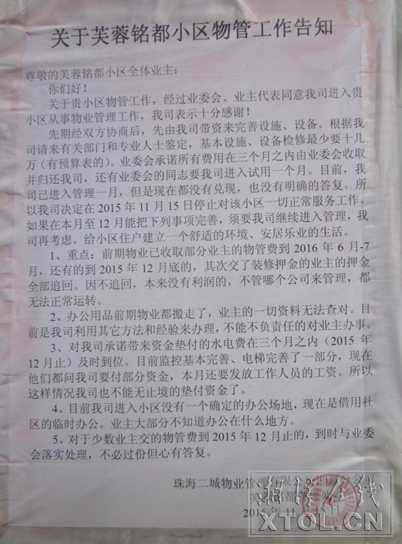 关于芙蓉铭都小区物管工作告知
尊敬的芙蓉铭都小区全体业主：
你们好！
关于贵小区物管工作，经过业委会、业主代表同意我司进入贵
小区从事物业管理工作，我司表示十分感谢！
先期经双方协商后，先由我司带资来完善设施、设备。根据我
司请来有关部门和专业人士鉴定，基本设施、设备检修最少要十几
万（有预算表的）。业委会承诺所有费用在三个月之内由业委会收取
并归还我司，还有业委会的同志要我司进入试用一个月。目前，我
司已进入管理一月，但是现在都没有兑现，也没有明确的答复。所
以我司决定在 2015 年 11 月 15 日停止对该小区一切正常服务工作。
如果在本月至 12 月能把下列事项完善，须要我司继续进入管理，我
司再考虑。给小区住户建立一个舒适的环境、安居乐业的生活。
1、重点：前期物业已收取部分业主的物管费到 2016 年 6 月-7
月，还有的到 2015 年 12 月底的，其次交了装修押金的业主的押金
全部追回。因不追回，本来没有利润的，不管哪个公司来管理，都
无法正常运转。
2、办公用品前期物业都搬走了，业主的一切资料无法查对。目
前是我司利用其它方法和经验来办理，不能不负责任的对业主办事。
3、对我司承诺带来资金垫付的水电费在三个月之内（2015 年
12 月止）及时到位。目前监控基本完善、电梯完善了一部分，现在
他们都问我司要付部分资金，本月还要发放工作人员的工资。所以
这样情况我司也不能无止境的垫付资金了。
4、目前我司进入小区没有一个确定的办公场地，现在是借用社
区的临时办公。业主大部分不知道办公在什么地方。
5、对于少数业主交的物管费到 2015 年 12 月止的，到时与业委
会落实处理，不必过份但心有答复。
珠海二城物业管理有限公司
芙蓉铭都
2015 年 11 月
XTOL.CN